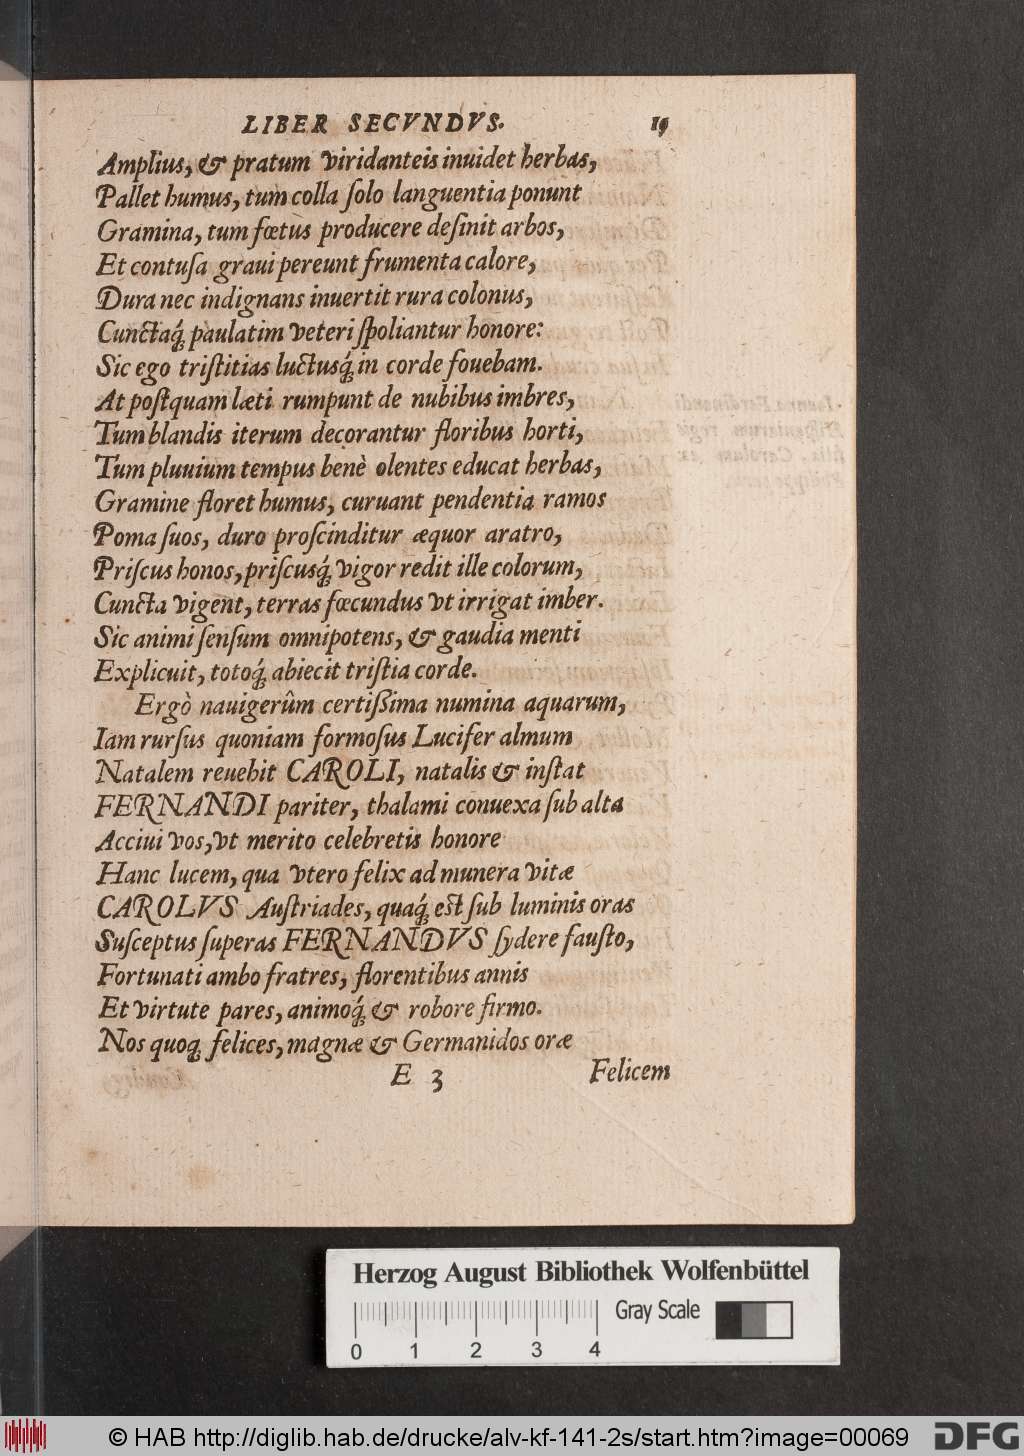 LIBER SECVNDVS. 19
Amplius, & pratum viridanteis inuidet herbas,
Pallet humus, tum colla ſolo languentia ponunt
Gramina, tum fœtus producere deſinit arbos,
Et contuſa graui pereunt frumenta calore,
Dura nec indignans inuertit rura colonus,
Cunctaq́; paulatim veteri ſpoliantur honore:
Sic ego triſtitias luctusq́; in corde fouebam.
At poſtquam læti rumpunt de nubibus imbres,
Tum blandis iterum decorantur floribus horti,
Tum pluuium tempus benè olentes educat herbas,
Gramine floret humus, curuant pendentia ramos
Poma ſuos, duro proſcinditur æquor aratro,
Priſcus honos, priſcusq́; vigor redit ille colorum,
Cuncta vigent, terras fœcundus vt irrigat imber.
Sic animi ſenſum omnipotens, & gaudia menti
Explicuit, totoq́; abiecit triſtia corde.
Ergò nauigerûm certiſſima numina aquarum,
Iam rurſus quoniam formoſus Lucifer almum
Natalem reuehit CAROLI, natalis & inſtat
FERNANDI pariter, thalami conuexa ſub alta
Acciui vos, vt merito celebretis honore
Hanc lucem, qua vtero felix ad munera vitæ
CAROLVS Auſtriades, quaq́; eſt ſub luminis oras
Suſceptus ſuperas FERNANDVS ſydere fauſto,
Fortunati ambo fratres, florentibus annis
Et virtute pares, animoq́; & robore firmo.
Nos quoq; felices, magnæ & Germanidos oræ
E 3 Felicem
Herzog August Bibliothek Wolfenbüttel
Gray Scale
0 1 2 3 4
© HAB http://diglib.hab.de/drucke/alv-kf-141-2s/start.htm?image=00069
DFG